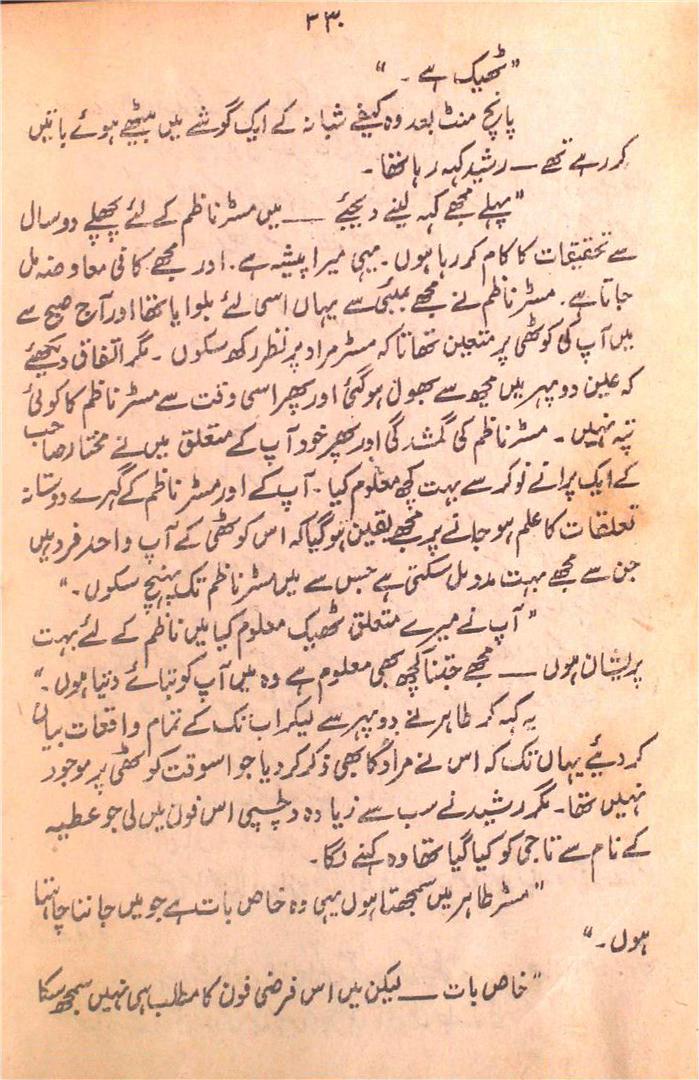 ۲۳۰
"ٹھیک ہے۔"
پانچ منٹ بعد وہ کیفے شبانہ کے ایک گوشے میں بیٹھے ہوئے باتیں
کر رہے تھے — رشید کہہ رہا تھا۔
"پہلے مجھے کہہ لینے دیجئے — میں مسٹر ناظم کے لئے پچھلے دو سال
سے تحقیقات کا کام کر رہا ہوں۔ یہی میرا پیشہ ہے۔ اور مجھے کافی معاوضہ مل
جاتا ہے۔ مسٹر ناظم نے مجھے بمبئی سے یہاں اسی لئے بلوایا تھا اور آج صبح سے
میں آپ کی کوٹھی پر متعین تھا تاکہ مسٹر مراد پر نظر رکھ سکوں۔ مگر اتفاق دیکھئے
کہ عین دوپہر میں مجھ سے بھول ہوگئی اور پھر اسی وقت سے مسٹر ناظم کا کوئی
پتہ نہیں۔ مسٹر ناظم کی گمشدگی اور پھر خود آپ کے متعلق میں نے مختار صاحب
کے ایک پرانے نوکر سے بہت کچھ معلوم کیا۔ آپ کے اور مسٹر ناظم کے گہرے دوستانہ
تعلقات کا علم ہو جانے پر مجھے یقین ہوگیا کہ اس کوٹھی کے آپ واحد فرد ہیں
جن سے مجھے بہت مدد مل سکتی ہے جس سے میں مسٹر ناظم تک پہنچ سکوں۔"
"آپ نے میرے متعلق ٹھیک معلوم کیا میں ناظم کے لئے بہت
پریشان ہوں — مجھے جتنا کچھ بھی معلوم ہے وہ میں آپ کو بتائے دیتا ہوں۔"
یہ کہہ کر طاہر نے دوپہر سے لیکر اب تک کے تمام واقعات بیان
کر دئیے یہاں تک کہ اس نے مراد کا بھی ذکر کر دیا جو اسوقت کوٹھی پر موجود
نہیں تھا۔ مگر رشید نے سب سے زیادہ دلچسپی اس فون میں لی جو عطیہ
کے نام سے تاجی کو کیا گیا تھا وہ کہنے لگا۔
"مسٹر طاہر میں سمجھتا ہوں یہی وہ خاص بات ہے جو میں جاننا چاہتا
ہوں۔"
"خاص بات — لیکن میں اس فرضی فون کا مطلب ہی نہیں سمجھ سکا